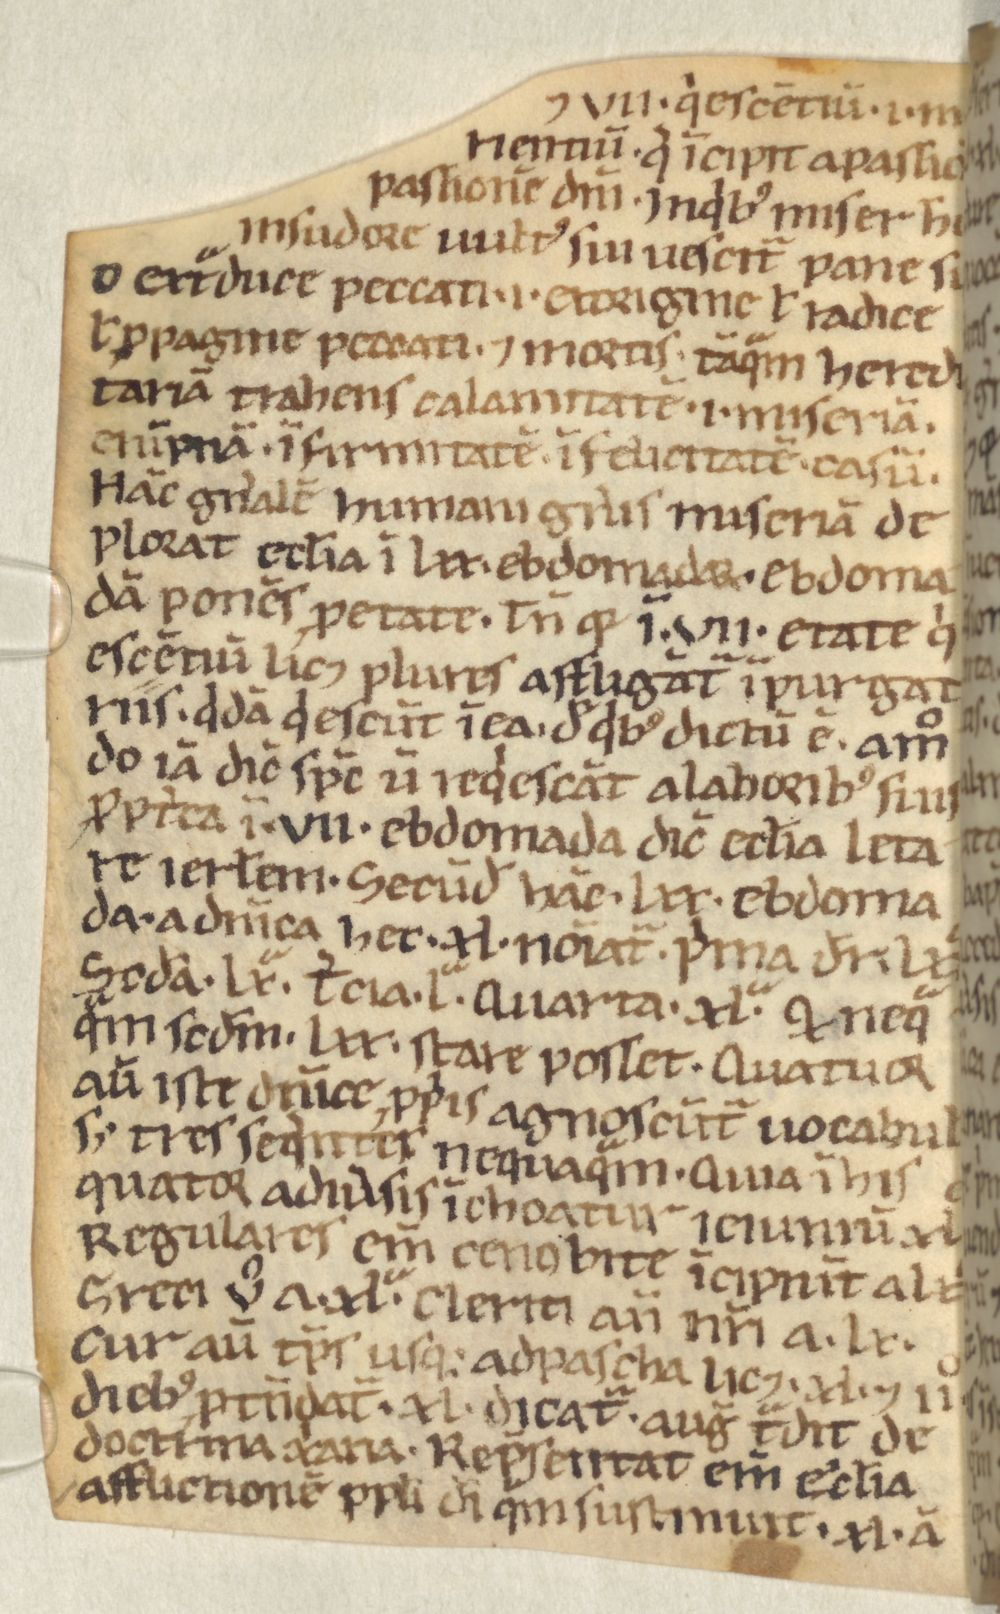 ⁊ VII · q̇escētiū · ı · m
rientiū · q̇ īcipit a passio
passionē dn̄i · Inqͥbꝰ miser ho
insudore uultꝰ sui uescit̄ pane su
o exͣduce peccati · ı · etorigine ł radice
ł ꝓpagine peccati · ⁊ mortis · tāqͣm heredi
tariā trahens calamitatē · ı · miseriā ·
erūpnā · īfirmitatē · īfelicitatē · casū ·
Hāc gn̄alē humani gn̄is miseriā de
plorat ecł̄ia ī lxx · ebdomadaꝝ · ebdoma
dā ponēs ꝑ etate · tn̄ qꝛ ī · VII · etate q̇
escētiū licꝫ plures affligāt̄ ī purgat
riis · qͥdā qͥescūt īea · d̄ qͥbꝰ dictū ē · amͦ
do iā dic̄ sp̄c ū reqͥescāt a laboribꝰ suis
ꝓpt̄ea ī · VII · ebdomada dic̄ ecł̄ia leta
re ierł̄em · Secūd̄ hāc · lxx · ebdoma
da · a dn̄ica hec · xl · noīat̄ · pͥma dr̄ · lxͣx
Scd̄a · lxͣ · t̄cia · lͣ · Quarta · xlͣ · Qꝛ neqͣ
qͣm scd̄m · lxx · stare posset · Quatuor
aū iste dn̄ice ꝓpͥis agnoscūt̄ uocabul
sꝫ tres seqͥntes nequaqͣm · Quia ī his
quator adiūsis īchoatur ieiuniū xl
Regulares em̄ cenobite īcipiūt a lx
Greci ṽͦ a · xlͣ · Clerici aū nr̄i a · lx ·
Cur aū tp̄s usqꝫ adpascha licꝫ · xl · ⁊ iiͦ
diebꝰ ꝓtn̄dat̄ · xl · dicat̄ · auḡ t̄dit de
doctrina xͣana · Repͥsentat em̄ ecł̄ia
afflictionē ppl̄i dī qͣm sustinuit · xl · ā